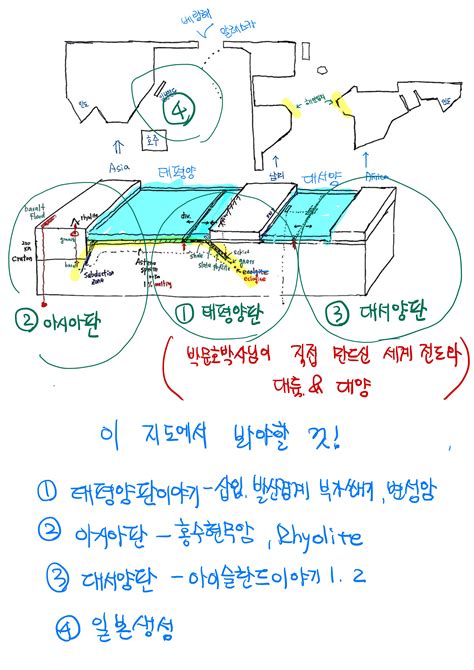 베링해
알래스카
인도
일본열도
④
호주
해안선
인도
Asia
태평양
남미
대서양
Africa
basalt
flood
rhyolite
div.
granite
200
km
Craton
basalt
Subduction
zone
Astheno
sphere
melting
shale
slate phyllite
schist
gneiss
eclogite
② 아시아판
① 태평양판
③ 대서양판
(박문호박사님이 직접 만드신 세계 전도와
대륙 & 대양)
이 지도에서 봐야할 것!
① 태평양판이야기 - 섭입, 발산경계 부가쐐기, 변성암
② 아시아판 - 홍수현무암, Rhyolite
③ 대서양판 - 아이슬란드이야기 1. 2
④ 일본생성